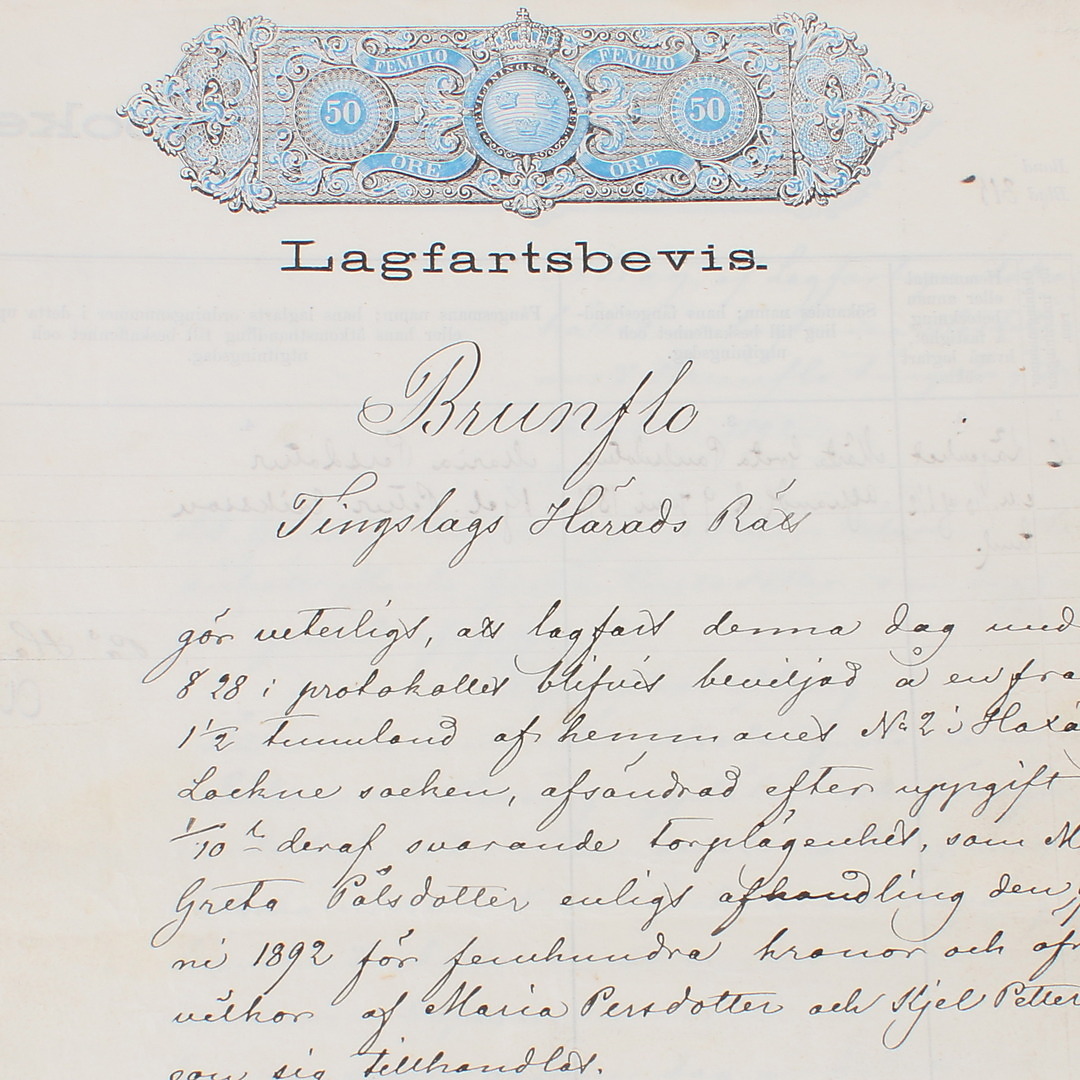 FEMTIO FEMTIO
50 50
ÖRE ÖRE
Lagfartsbevis.
Brunflo
Tingslags Härads Rätt
gör veterligt, att lagfart denna dag und
§ 28 i protokollet blifvit beviljad å en från
1 1/2 tunnland af hemmanet No 2 i Haxå
Lockne socken, afsöndrad efter uppgift
1/10 deraf svarande torplägenhet, som M
Greta Pålsdotter enligt afhandling den
ni 1892 för femhundra kronor och öfr
vilkor af Maria Persdotter och Kjel Petter
son sig tillhandlat.